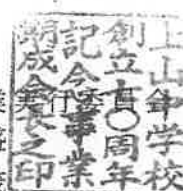 上山中学校
創立七〇周年
記念事業
期成会長之印
実行委員会